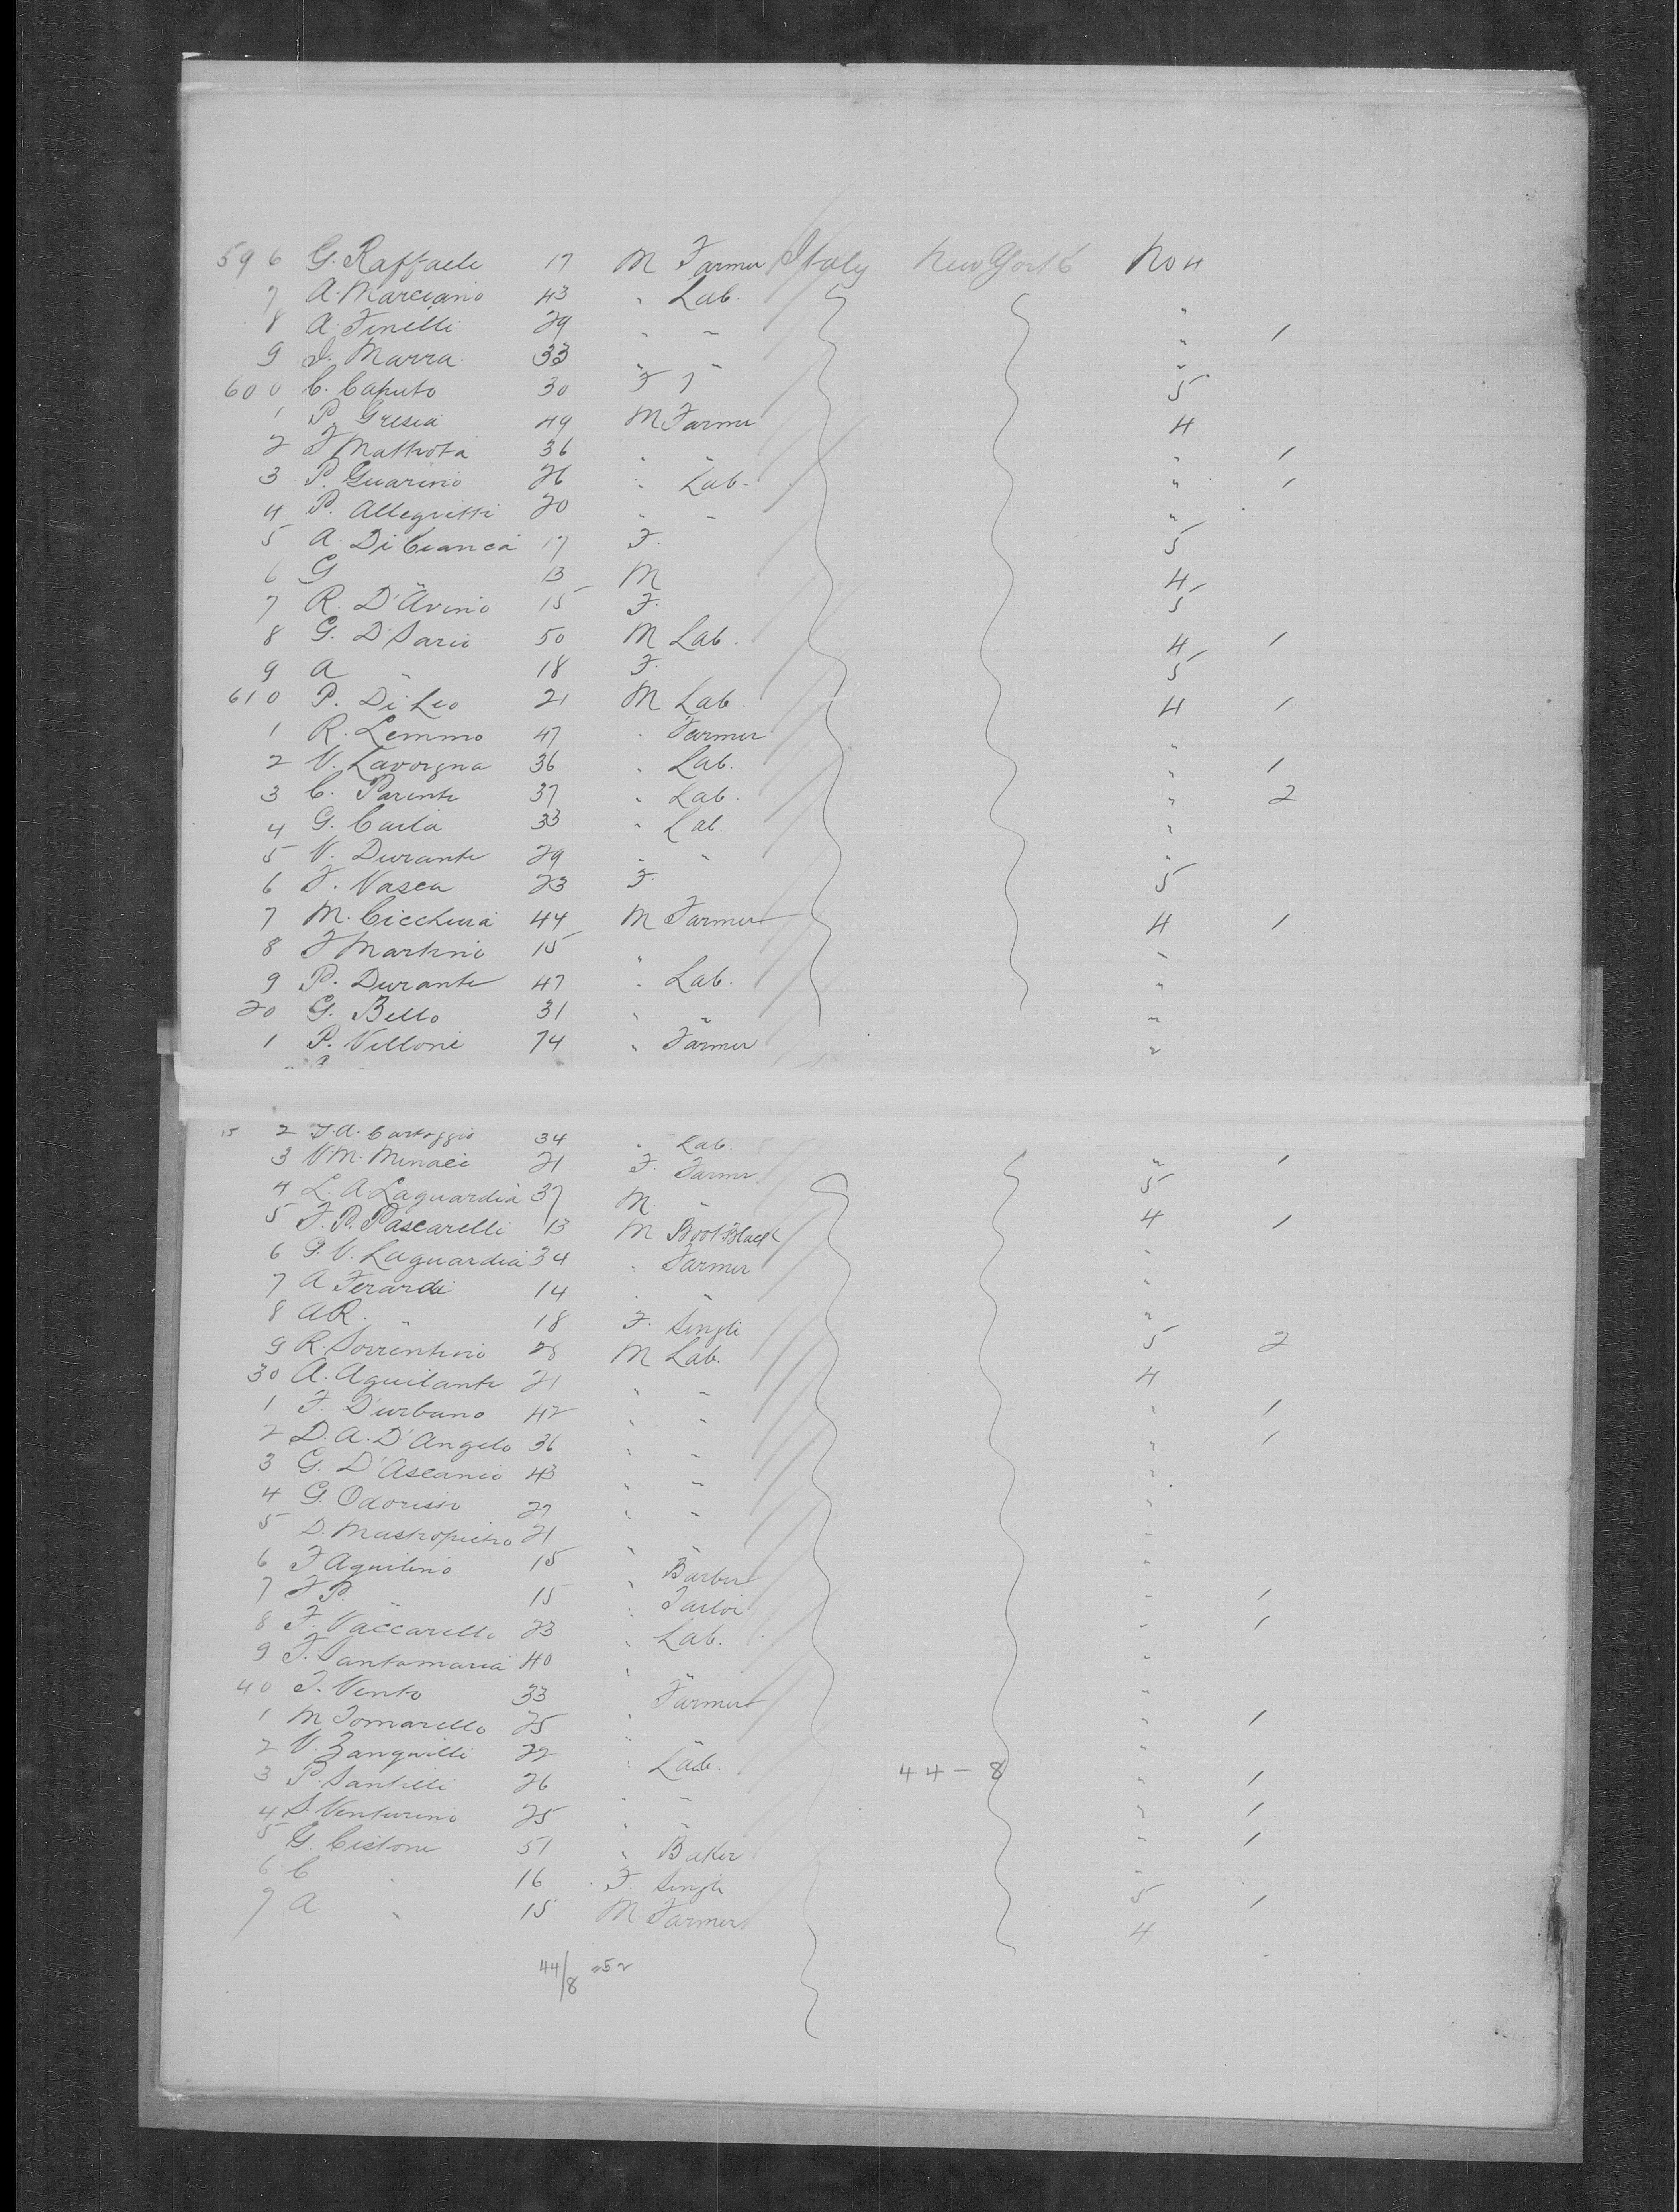 596 G. Raffaele 17 M Farmer Italy New York No 4
7 A. Marciano 43 " Lab. "
8 A. Finelli 29 " " " 1
9 J. Marra 33 " " "
600 C. Caputo 30 F " 5
1 P. Gresia 49 M Farmer 4
2 F Mattrota 36 " " " 1
3 P. Guarino 26 " Lab. " 1
4 P. Allegretti 20 " " "
5 A. Di Cianca 17 F. 5
6 G " 13 M 4
7 R. D'Avino 15 F. 5
8 G. D'Sario 50 M Lab. 4 1
9 A " 18 F. 5
610 P. Di Leo 21 M Lab. 4 1
1 R. Lemmo 47 " Farmer "
2 V. Lavorgna 36 " Lab. " 1
3 C. Parente 37 " Lab. " 2
4 G. Carla 33 " Lab. "
5 V. Durante 29 " " "
6 F. Vasca 23 F. 5
7 M. Cicchina 44 M Farmer 4 1
8 F Martino 15 " "
9 P. Durante 47 " Lab. "
20 G. Bello 31 " " "
1 P. Villone 14 " Farmer "
15 2 F. A. Cartaggio 34 " Lab. " 1
3 V. M. Minaci 21 F. Farmer 5
4 L. A. Laguardia 37 M. " 4 1
5 F. P. Pascarelli 13 M Boot Black "
6 P. V. Laguardia 34 " Farmer "
7 A Ferardi 14 " " "
8 A R. " 18 F. Single 5 2
9 R. Sorrentino 28 M Lab. 4
30 A. Aquilante 21 " " " 1
1 F. D'urbano 42 " " " 1
2 D. A. D'Angelo 36 " " "
3 G. D'Ascanio 43 " " "
4 G. Odorisio 27 " " "
5 D. Mastropietro 21 " " "
6 F Aquilino 15 " Barber " 1
7 F P. " 15 " Tailor " 1
8 F. Vaccarello 23 " Lab. "
9 F. Santamaria 40 " " "
40 F. Vento 33 Farmer " 1
1 M Tomarello 25 " " "
2 V. Zanquilli 22 " Lab. 44-8 " 1
3 P. Santilli 26 " " " 1
4 S. Venturino 25 " " " 1
5 G. Cistone 51 " Baker "
6 C " 16 F. Single 5 1
7 A " 15 M Farmer 4
44/8 = 52